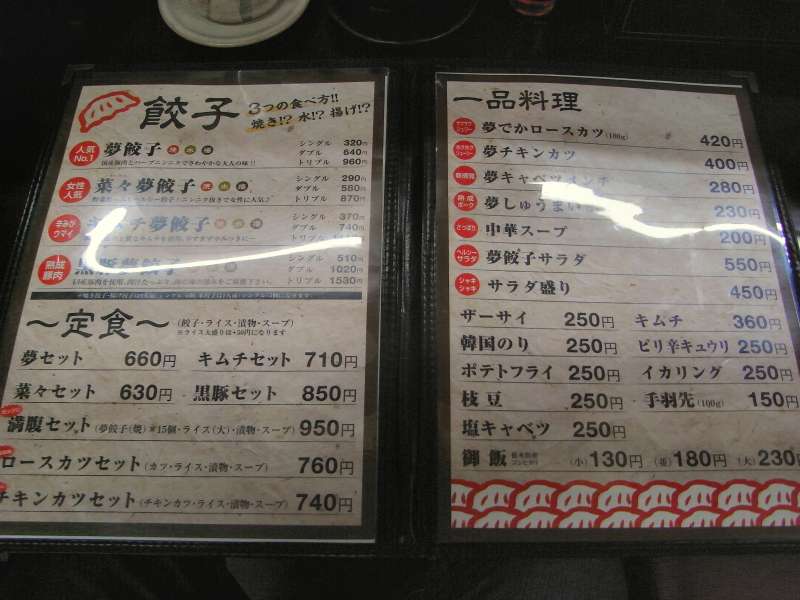 餃子 3つの食べ方!!
焼き!? 水!? 揚げ!?
人気No.1 夢餃子 シングル 320円
ダブル 640円
トリプル 960円
国産豚肉とハーブニンニクでさわやかな大人の味!!
女性人気 菜々夢餃子 シングル 290円
ダブル 580円
トリプル 870円
辛みがウマイ キムチ夢餃子 シングル 370円
ダブル 740円
熟成豚肉 黒豚夢餃子 シングル 510円
ダブル 1020円
トリプル 1530円
〜定食〜 (餃子・ライス・漬物・スープ)
※ライス大盛りは+50円になります
夢セット 660円 キムチセット 710円
菜々セット 630円 黒豚セット 850円
満腹セット (夢餃子(焼)※15個・ライス(大)・漬物・スープ) 950円
ロースカツセット (カツ・ライス・漬物・スープ) 760円
チキンカツセット (チキンカツ・ライス・漬物・スープ) 740円
一品料理
夢でかロースカツ(180g) 420円
夢チキンカツ 400円
夢キャベツメンチ 280円
熟成ポーク 夢しゅうまい 230円
さっぱり 中華スープ 200円
ヘルシーサラダ 夢餃子サラダ 550円
シャキシャキ サラダ盛り 450円
ザーサイ 250円 キムチ 360円
韓国のり 250円 ピリ辛キュウリ 250円
ポテトフライ 250円 イカリング 250円
枝豆 250円 手羽先(100g) 150円
塩キャベツ 250円
御飯 (小)130円 (並)180円 (大)230円